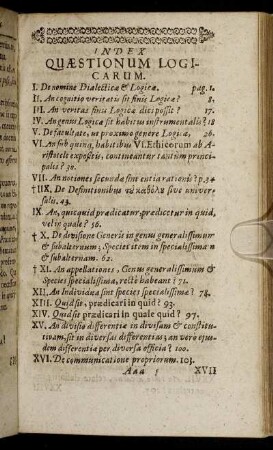 INDEX
QUÆSTIONUM LOGI-
CARUM.
I. De nomine Dialecticæ & Logicæ. pag. 1.
II. An cognitio veritatis sit finis Logicæ? 8.
III. An veritas finis Logicæ dici possit? 17.
IV. An genus Logicæ sit habitus instrumentalis? 18
V. De facultate, ut proximo genere Logicæ, 26.
VI. An sub quinq, habitibus VI. Ethicorum ab A-
ristotele expositis, contineantur tantum princi-
palis? 30.
VII. An notiones secundæ sint entia rationis? p. 34
† IIX. De Definitionibus τῦ καθόλυ sive univer-
salis. 43.
IX. An, quicquid prædicatur, prædicetur in quid,
vel in quale? 56.
† X. De divisione Generis in genus generalissimum
& subalternum; Speciei item in specialissimam
& subalternam. 62.
† XI. An appellationes, Genus generalissimum &
Species specialissima, rectè habeant? 71.
XII. An Individua sint species specialissima? 78.
XIII. Quid sit, prædicari in quid? 93.
XIV. Quid sit prædicari in quale quid? 97.
XV. An divisio differentiæ in divisam & constituti-
vam, sit in diversas differentias; an vero ejus-
dem differentiæ per diversa officia? 100.
XVI. De communicatione propriorum. 103.
Aaa XVII